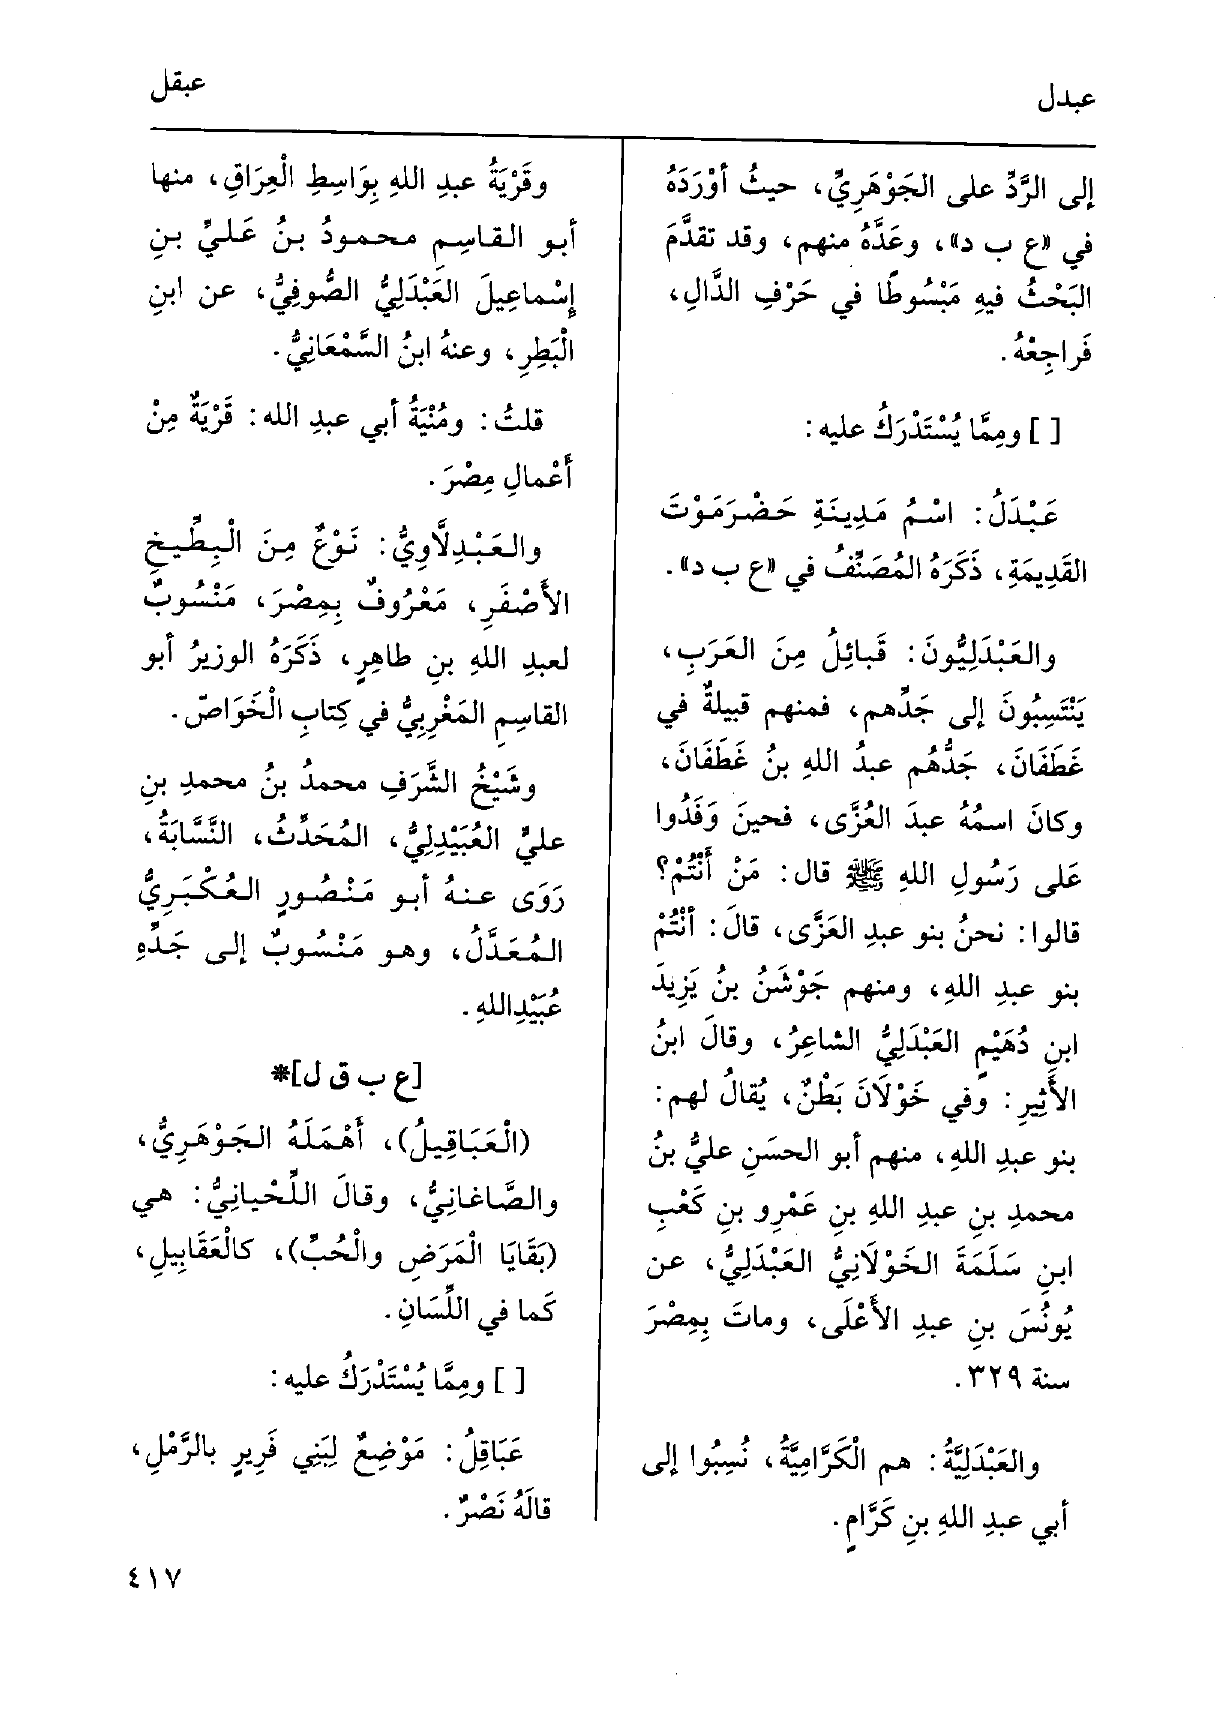 عبدل
عبقل
إلى الرَّدِّ على الجَوْهَرِيِّ، حيثُ أوْرَدَهُ
في «ع ب د»، وعَدَّهُ منهم، وقد تقدَّمَ
البَحْثُ فيهِ مَبْسُوطًا في حَرْفِ الدَّالِ،
فَراجِعْهُ.
[ ] ومِمَّا يُسْتَدْرَكُ عليه:
عَبْدَلُ: اسْمُ مَدِينَةِ حَضْرَمَوْتَ
القَدِيمَةِ، ذَكَرَهُ المُصَنِّفُ في «ع ب د».
والعَبْدَلِيُّونَ: قَبائِلُ مِنَ العَرَبِ،
يَنْتَسِبُونَ إلى جَدِّهم، فمنهم قبيلةٌ في
غَطَفَانَ، جَدُّهُم عبدُ اللهِ بنُ غَطَفَانَ،
وكانَ اسمُهُ عبدَ العُزَّى، فحينَ وَفَدُوا
عَلى رَسُولِ اللهِ ﷺ قال: مَنْ أَنْتُمْ؟
قالوا: نحنُ بنو عبدِ العَزَّى، قالَ: أنْتُمْ
بنو عبدِ اللهِ، ومنهم جَوْشَنُ بنُ يَزِيدَ
ابنِ دُهَيْمٍ العَبْدَلِيُّ الشاعِرُ، وقالَ ابنُ
الأَثِيرِ: وفي خَوْلَانَ بَطْنٌ، يُقالُ لهم:
بنو عبدِ اللهِ، منهم أبو الحسَنِ عليُّ بنُ
محمدِ بنِ عبدِ اللهِ بنِ عَمْرِو بنِ كَعْبِ
ابنِ سَلَمَةَ الخَوْلَانِيُّ العَبْدَلِيُّ، عن
يُونُسَ بنِ عبدِ الأَعْلَى، وماتَ بِمِصْرَ
سنة ٣٢٩.
والعَبْدَلِيَّةُ: هم الْكَرَّامِيَّةُ، نُسِبُوا إلى
أبي عبدِ اللهِ بنِ كَرَّامٍ.
وقَرْيَةُ عبدِ اللهِ بِوَاسِطِ الْعِراقِ، منها
أبو القاسِمِ محمودُ بنُ عَليِّ بنِ
إسْماعِيلَ العَبْدَلِيُّ الصُّوفِيُّ، عن ابنِ
الْبَطِرِ، وعنهُ ابنُ السَّمْعَانِيُّ.
قلتُ: ومُنْيَةُ أبي عبدِ الله: قَرْيَةٌ مِنْ
أَعْمالِ مِصْرَ.
والعَبْدِلَّاوِيُّ: نَوْعٌ مِنَ الْبِطِّيخِ
الأَصْفَرِ، مَعْرُوفٌ بِمِصْرَ، مَنْسُوبٌ
لعبدِ اللهِ بنِ طاهِرٍ، ذَكَرَهُ الوزيرُ أبو
القاسِمِ المَغْرِبِيُّ في كِتابِ الْخَوَاصّ.
وشَيْخُ الشَّرَفِ محمدُ بنُ محمدِ بنِ
عليٍّ العُبَيْدِلِيُّ، المُحَدِّثُ، النَّسَّابَةُ،
رَوَى عنهُ أبو مَنْصُورٍ العُكْبَرِيُّ
المُعَدَّلُ، وهو مَنْسُوبٌ إلى جَدِّهِ
عُبَيْدِاللهِ.
[ع ب ق ل]*
(الْعَبَاقِيلُ)، أَهْمَلَهُ الجَوْهَرِيُّ،
والصَّاغانِيُّ، وقالَ اللِّحْيانِيُّ: هي
(بَقَايَا الْمَرَضِ والْحُبِّ)، كالْعَقَابِيلِ،
كَما في اللِّسَانِ.
[ ] ومِمَّا يُسْتَدْرَكُ عليه:
عَبَاقِلُ: مَوْضِعٌ لِبَنِي فَرِيرٍ بالرَّمْلِ،
قالَهُ نَصْرٌ.
٤١٧